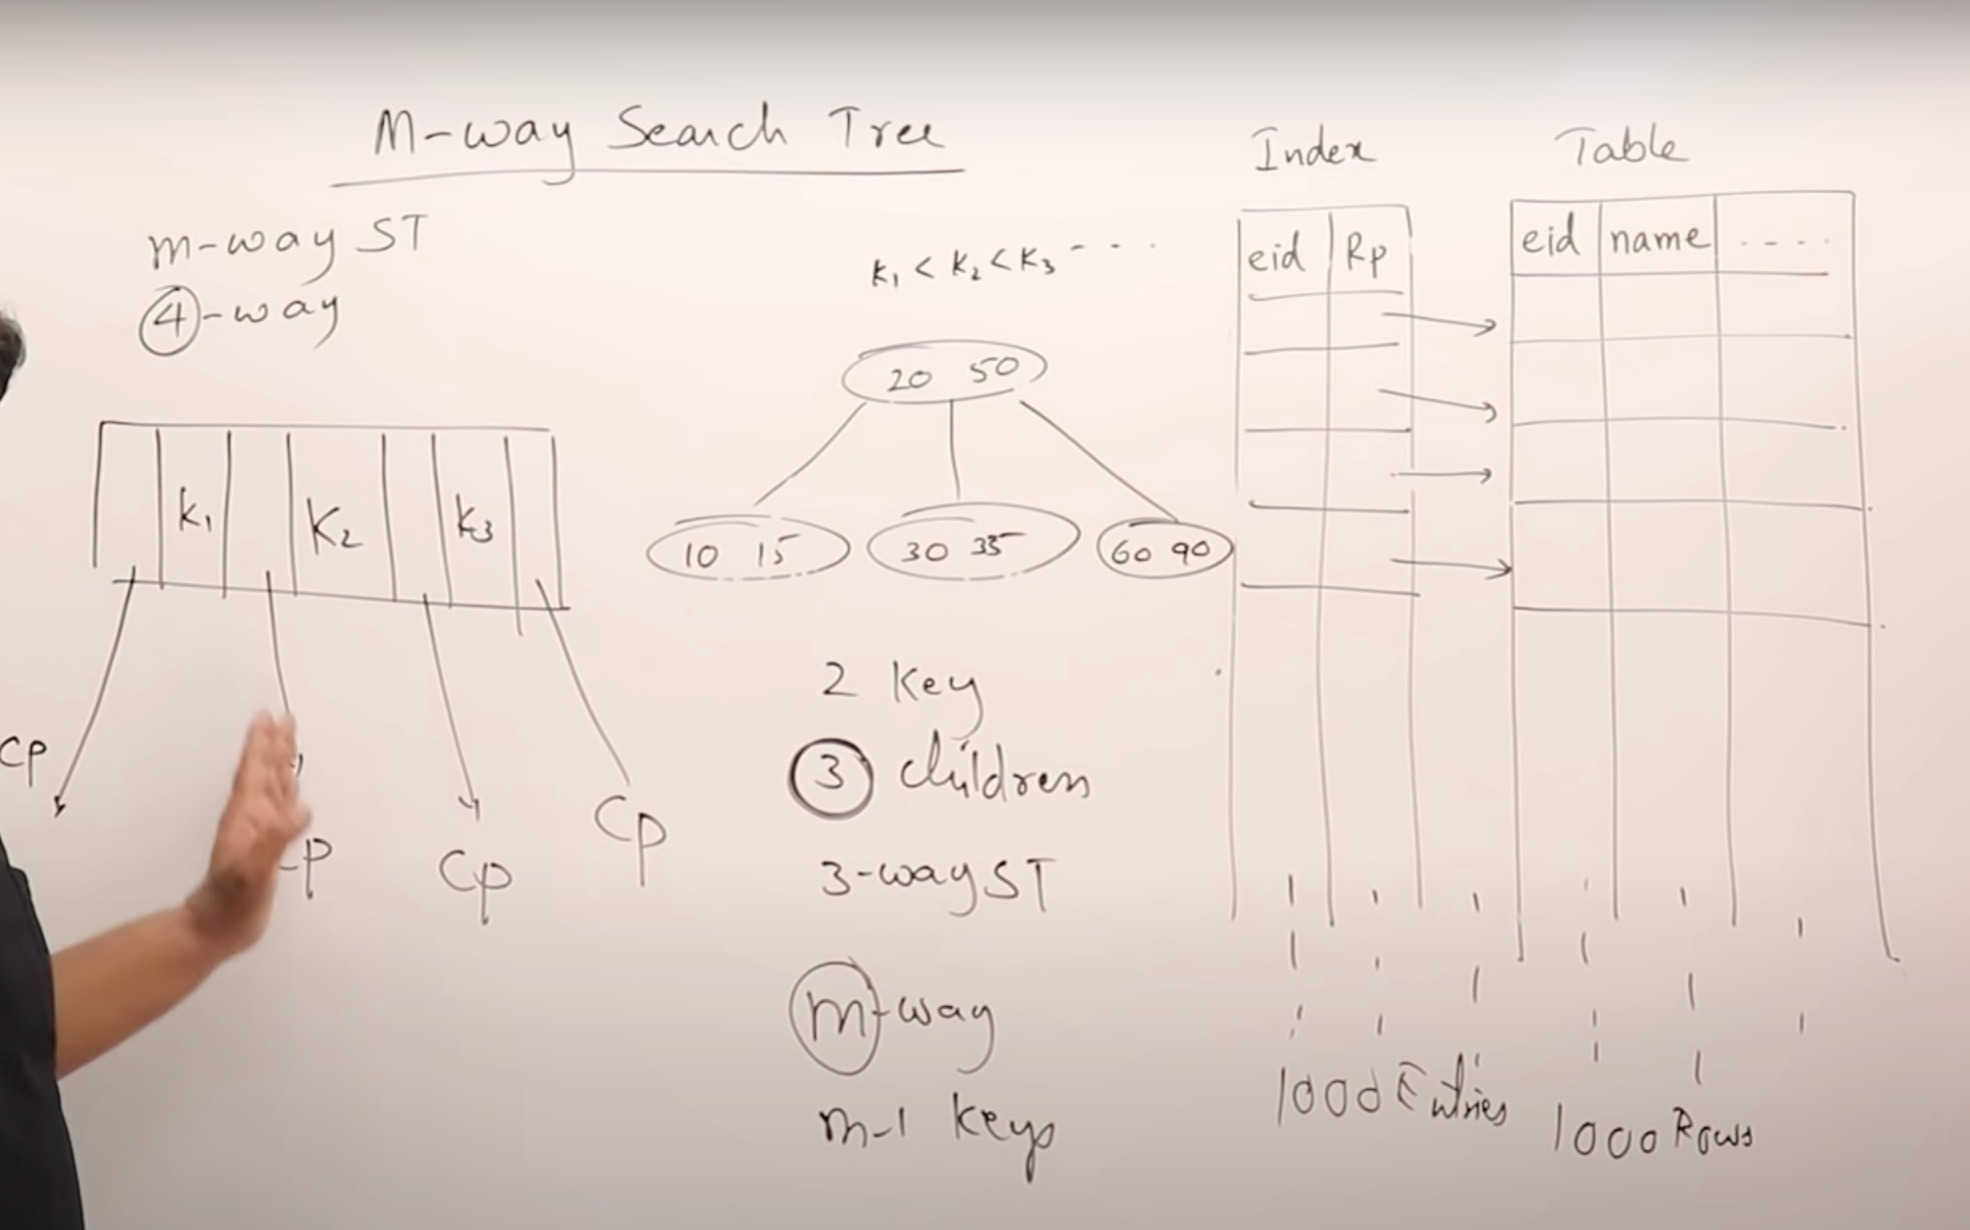 M-way Search Tree
m-way ST
4-way
k₁ K₂ k₃
CP
CP
CP
k₁ < k₂ < k₃ - - - -
20 50
10 15
30 35
60 90
2 Key
3 children
3-way ST
m-way
m-1 keys
Index
eid Rp
1000 Entries
Table
eid name ----
1000 Rows